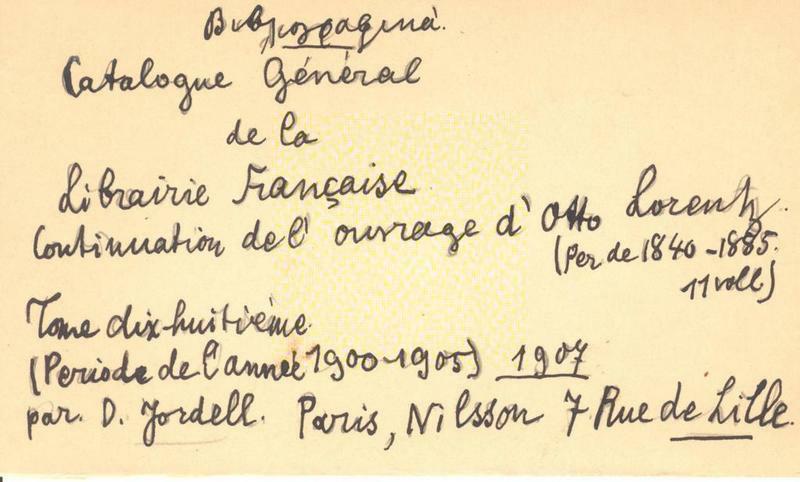 Catalogue Général
de la
Librairie Française
Continuation de l' ouvrage d' Otto Lorentz.
(Per de 1840-1885.
11 voll)
Tome dix-huitième
(Periode de l'année 1900-1905) 1907
par. D. Jordell. Paris, Nilsson 7 Rue de Lille.